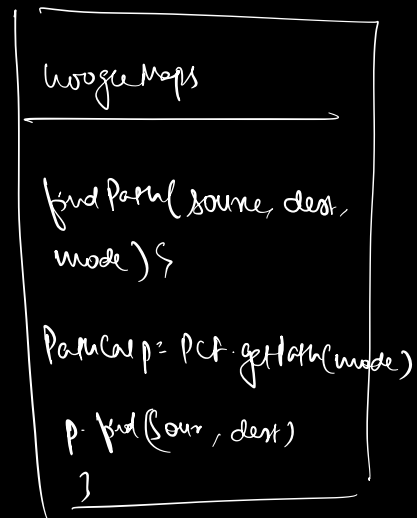 GoogleMaps
findPath(source, dest,
mode) {
PathCal p = PCF.getPath(mode)
p.find(Sour, dest)
}